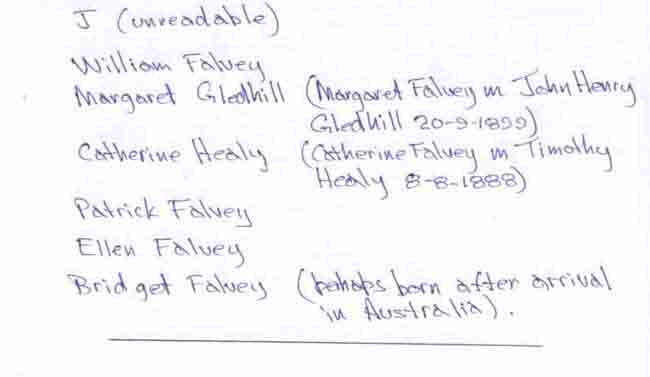 J (unreadable)
William Falvey
Margaret Gledhill (Margaret Falvey m John Henry
Gledhill 20-9-1899)
Catherine Healy (Catherine Falvey m Timothy
Healy 8-8-1888)
Patrick Falvey
Ellen Falvey
Bridget Falvey (perhaps born after arrival
in Australia).